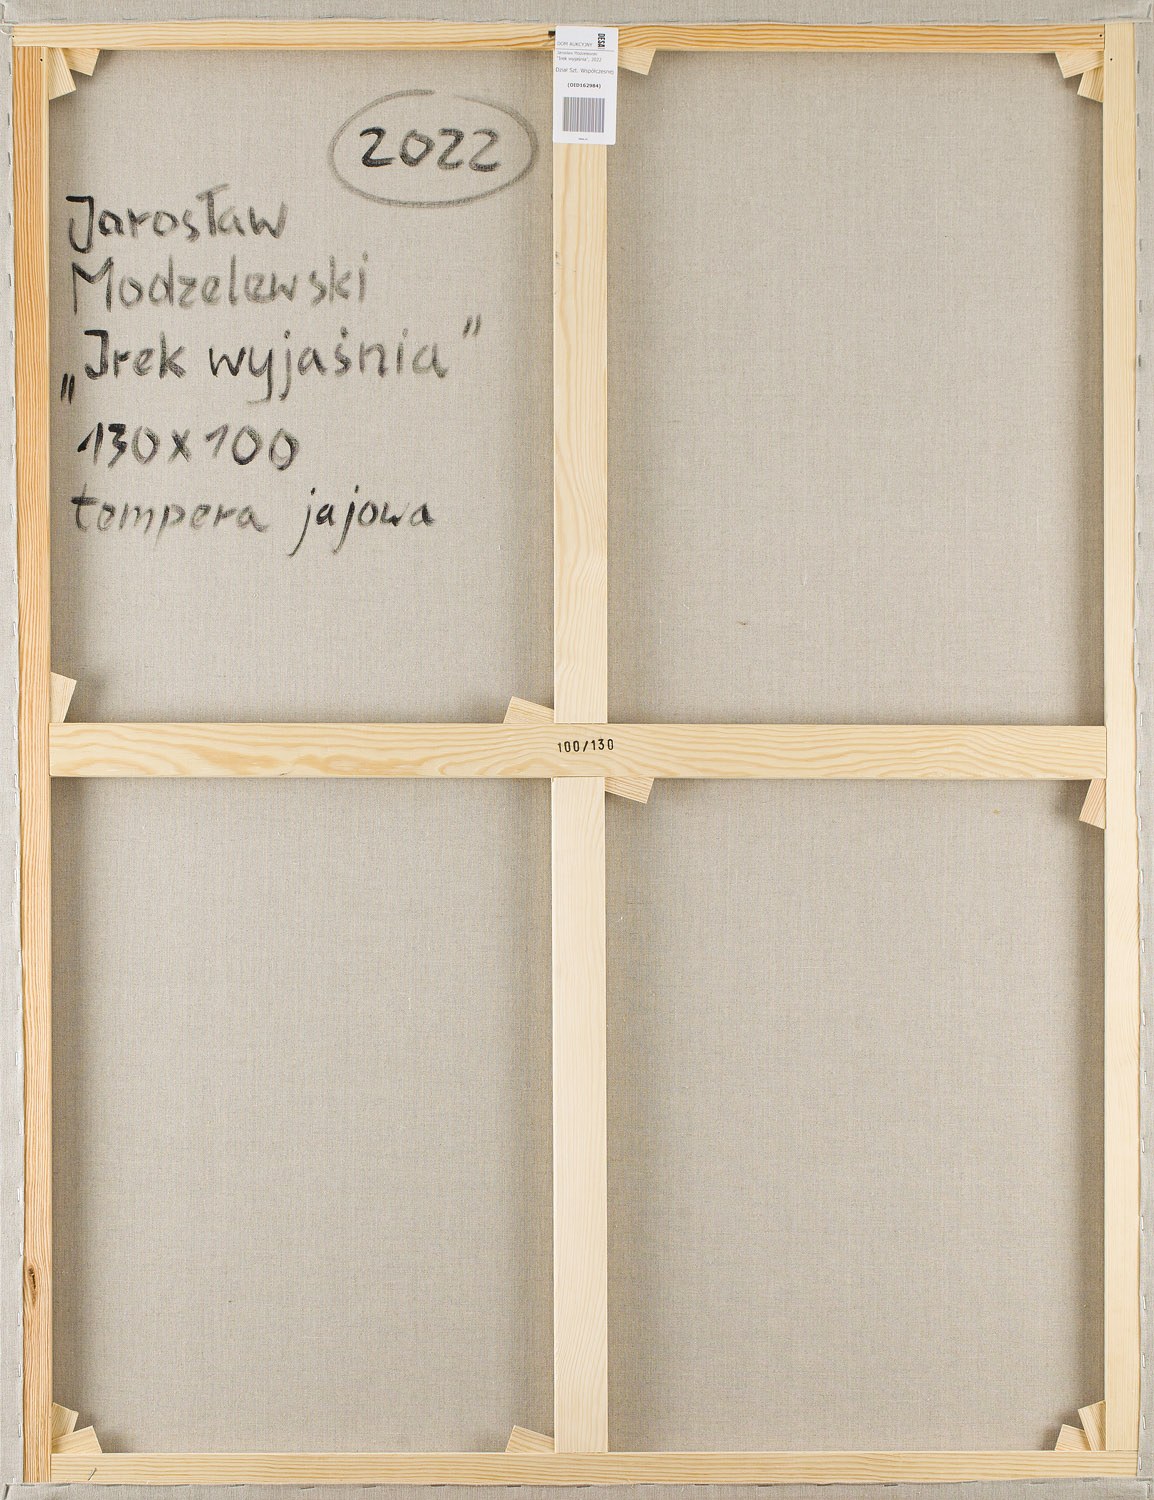 2022
Jarosław
Modzelewski
„Irek wyjaśnia”
130x100
tempera jajowa
DESA
DOM AUKCYJNY
Jarosław Modzelewski
"Irek wyjaśnia", 2022
Dział Szt. Współczesnej
(OID162984)
100/130